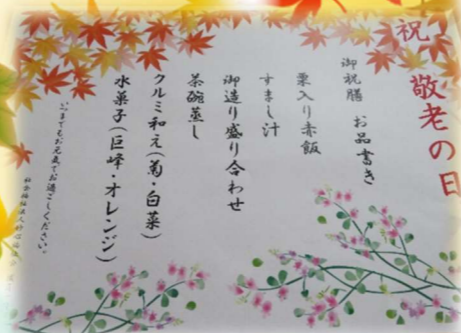 祝 敬老の日
御祝膳 お品書き
栗入り赤飯
すまし汁
御造り盛り合わせ
茶碗蒸し
クルミ和え(菊・白菜)
水菓子(巨峰・オレンジ)
いつまでもお元気でお過ごしください。
社会福祉法人